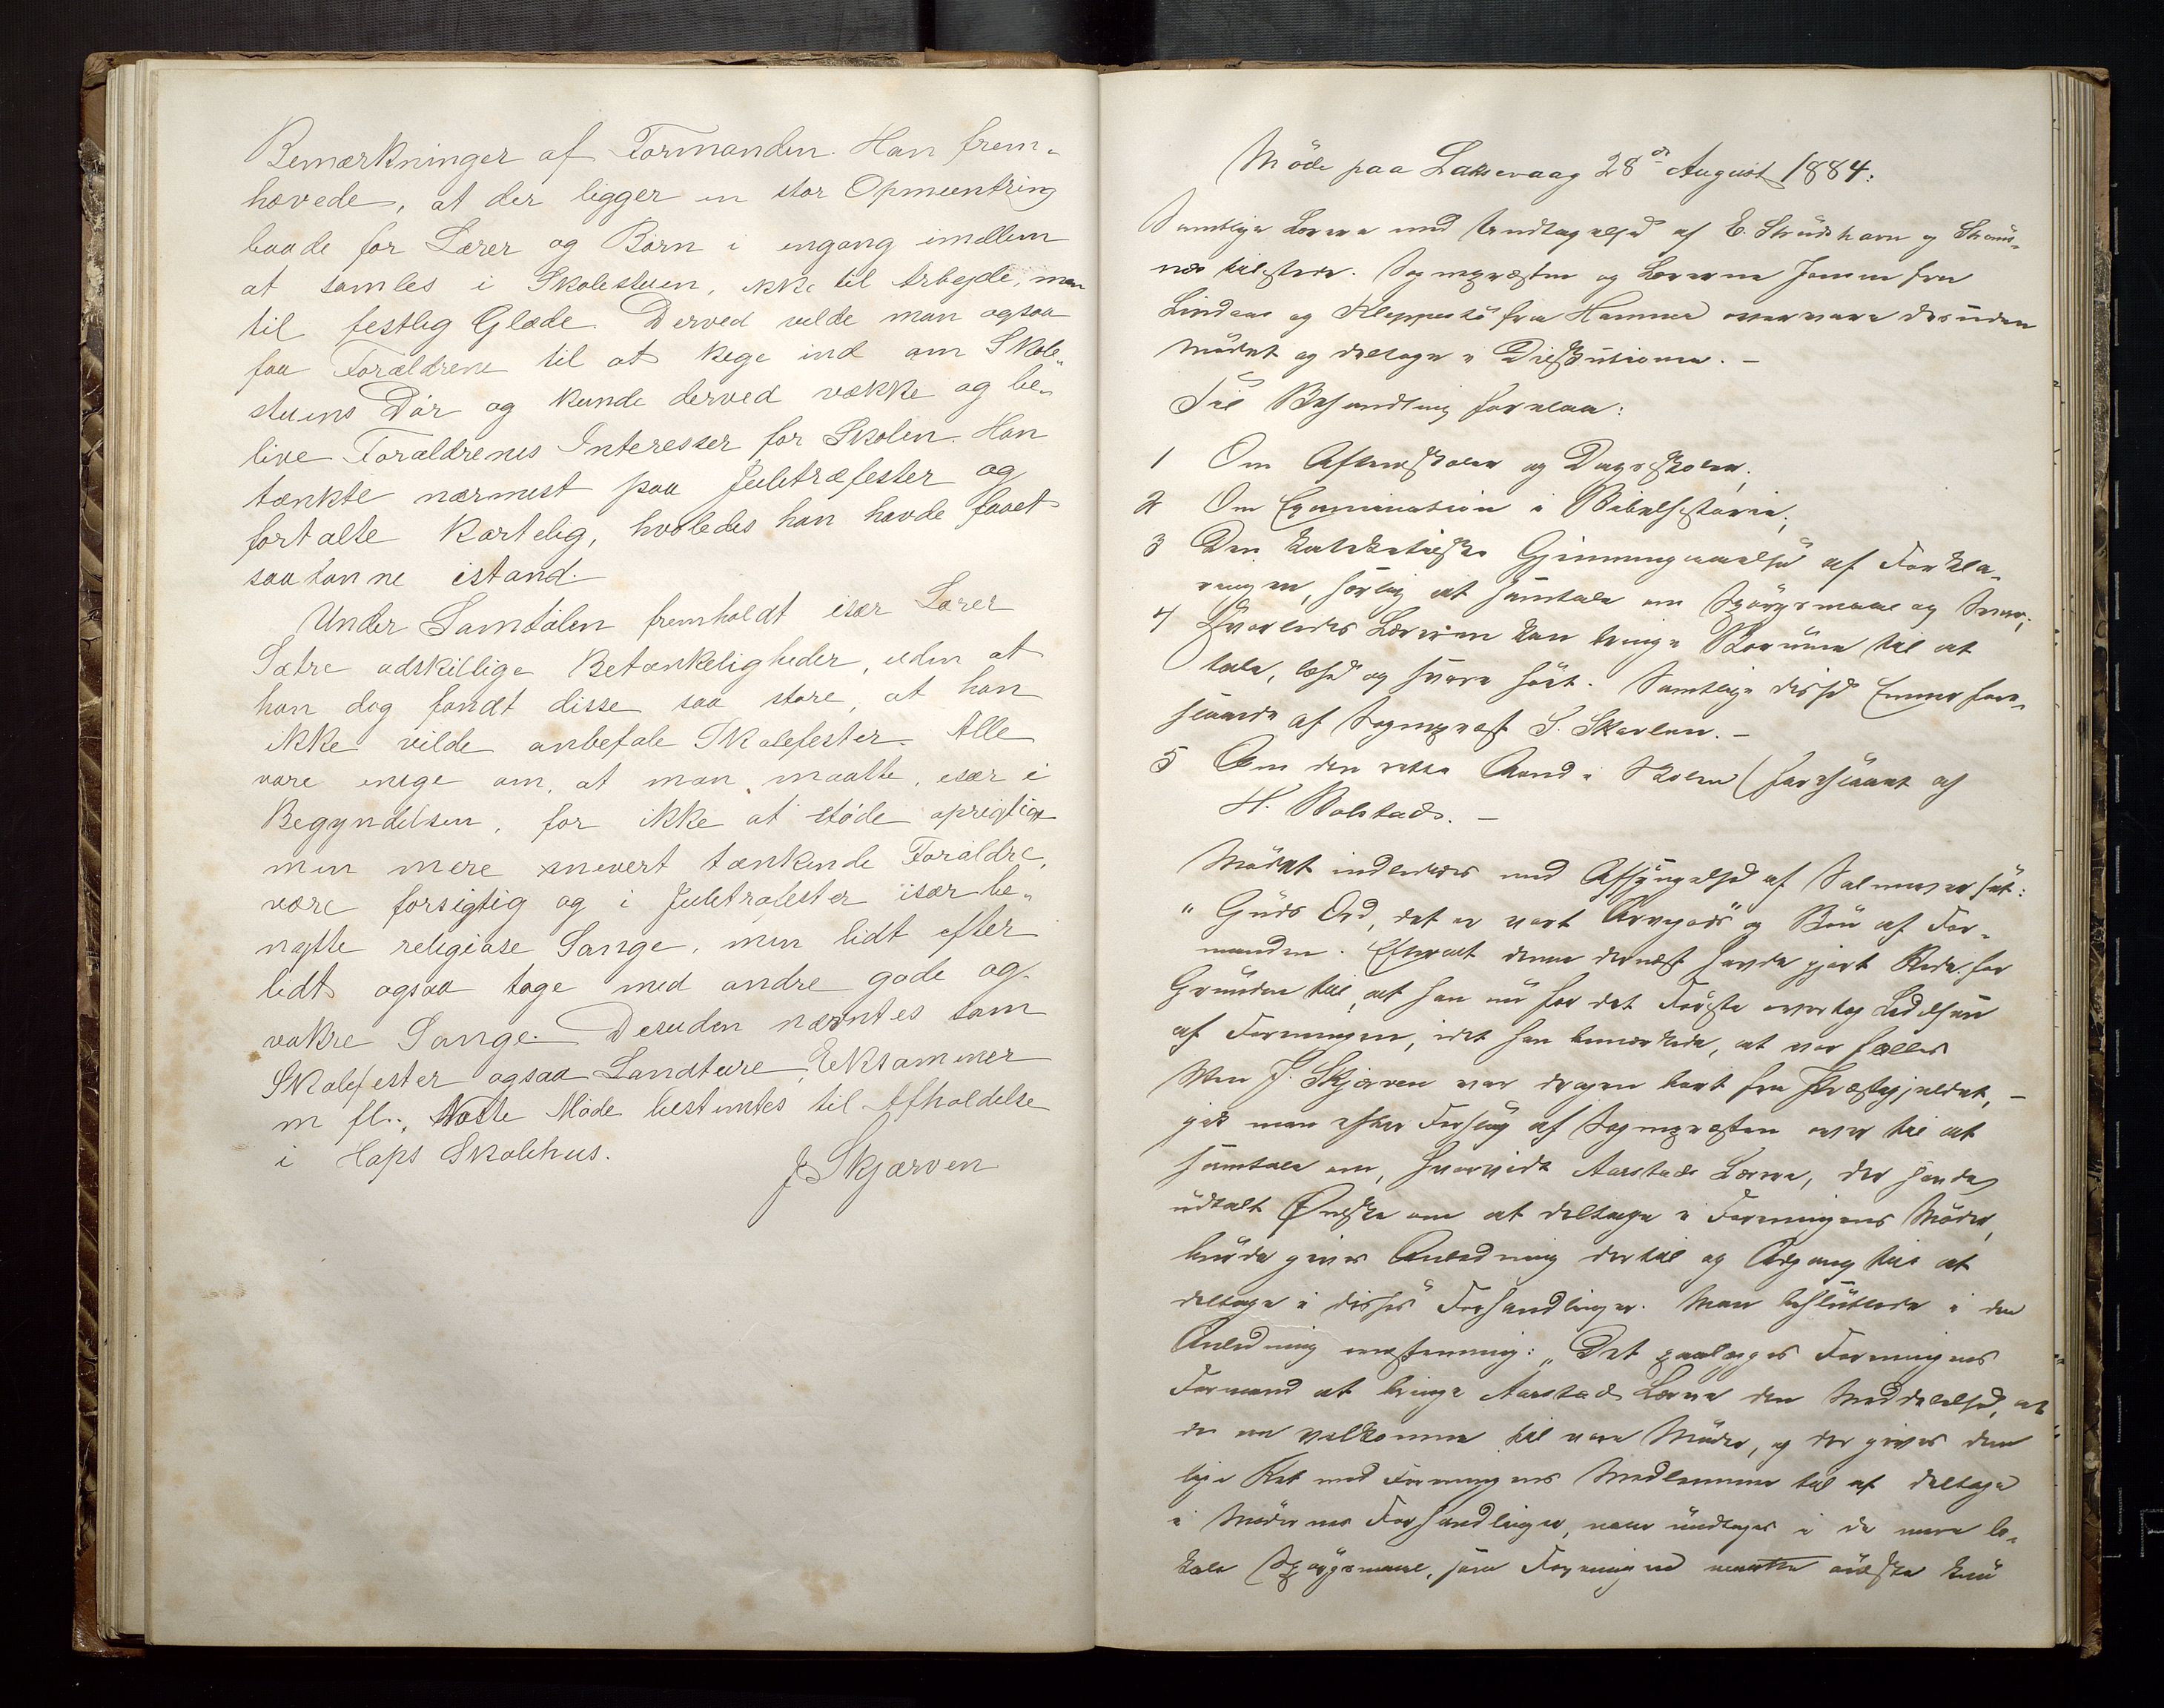 Bemærkninger af Formanden. Han frem-
hævede, at der ligger en stor Opmuntring
baade for Lærer og Børn i engang imellem
at samles i Skolestuen, ikke til Arbejde, men
til festlig Glæde. Derved vilde man ogsaa
faa Forældrene til at kige ind om Skole-
stuens Dør og kunde derved vække og be-
live Forældrenes Interesser for Skolen. Han
tænkte nærmest paa Juletræfester og
fortalte kortelig, hvoledes han havde faaet
saadanne istand.
Under Samtalen fremholdt især Lærer
Sætre adskillige Betænkeligheder, uden at
han dog fandt disse saa store, at han
ikke vilde anbefale Skolefester. Alle
vare enige om, at man maatte, især i
Begyndelsen, for ikke at støde oprigtige
men mere snevert tænkende Forældre,
være forsigtig og i Juletræfester især be-
nytte religiøse Sange, men lidt efter
lidt ogsaa tage med andre gode og
vakre Sange. Desuden nævntes som
Skolefester ogsaa Landture, Eksammer
m fl.. Næste Møde bestemtes til Afholdelse
i Hops Skolehus.
J Skjærven
Møde paa Laksevaag 28de August 1884.
Samtlige Lærere med Undtagelse af E. Skuds havn og Straus-
næs tilstede. Sognepræsten og Lærerne Jansen fra
Lindaas og Kleppestø fra Hammer overvare desuden
Mødet og deltoge i Diskusionen. –
Til Behandling forelaa:
1 Om Aftenskolen og Dagskolen;
2 Om Examination i Bibelhistorie;
3 Den kateketiske Gjennemgaaelse af Forkla-
ringen, særlig at samtale om Spørgsmaal og Svar;
4 Hvorledes Læreren kan bringe Børnene til at
tale, læse og svare høit. Samtlige disse Emner fore-
slaaede af Sognepræst S. Skavlan. –
5 Om den rette Aand i Skolen (foreslaaet af
H. Bolstad). –
Mødet indlededes med Afsyngelse af Salmeverset:
"Guds Ord, det er vort Arvegods" og Bøn af For-
manden. Efterat denne dernæst havde gjort Rede for
Grunden til, at han nu for det Første overtog Ledelsen
af Foreningen, idet han bemærkede, at vor fælles
Ven J. Skjærven var dragen bort fra Præstegjeldet, –
gik man efter Forslag af Sognepræsten over til at
samtale om, hvorvidt Aarstads Lærere, der havde
udtalt Ønske om at deltage i Foreningens Møder,
burde gives Anledning dertil og Adgang til at
deltage i disses Forhandlinger. Man besluttede i den
Anledning enstemmig: "Det paalægges Foreningens
Formand at bringe Aarstads Lærere den Meddelelse, at
de ere velkomne til vore Møder, og der gives dem
lige Ret med Foreningens Medlemmer til at deltage
i Mødernes Forhandlinger, naar undtages i de mere lo-
kale Spørgsmaal, som Foreningen maatte ønske kun